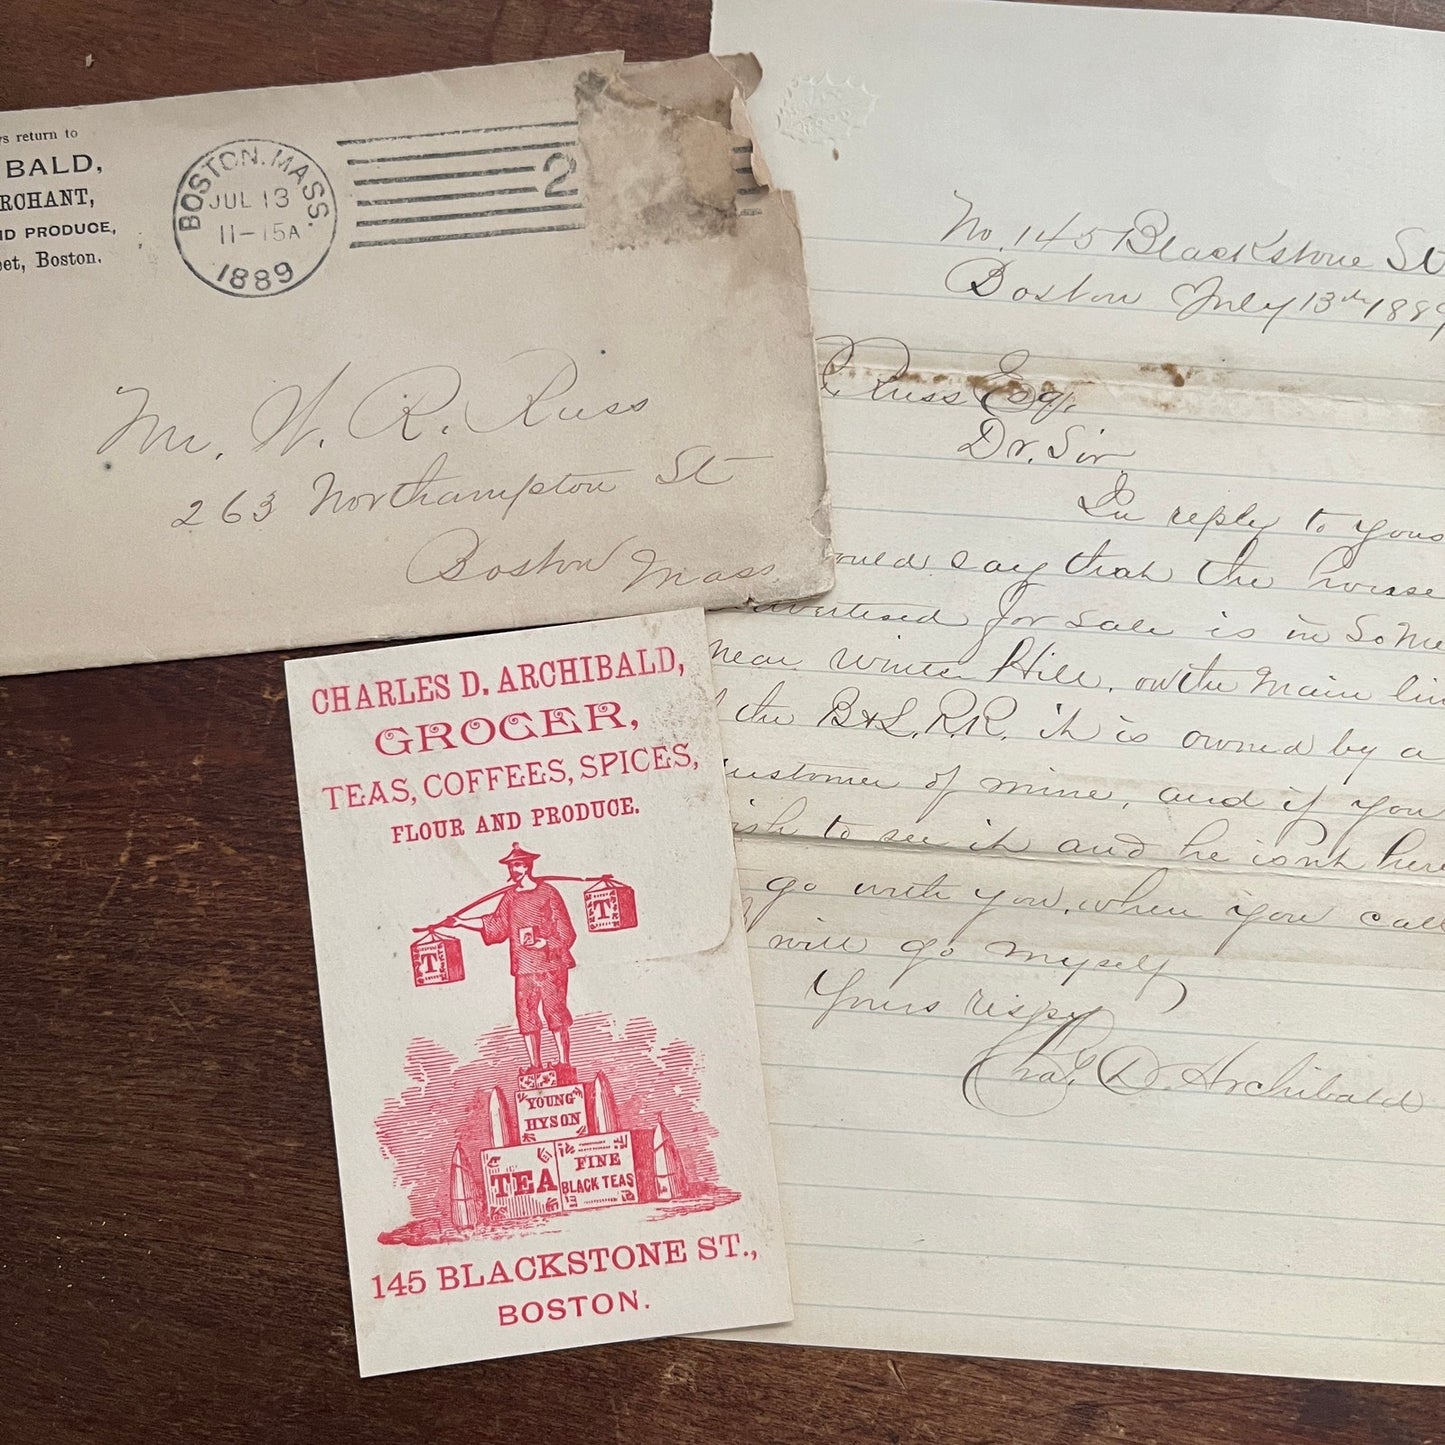 ys return to
BALD,
RCHANT,
ND PRODUCE,
eet, Boston.
BOSTON. MASS.
JUL 13
11-15A
1889
2
Mr. W. R. Russ
263 Northampton St
Boston Mass.
No. 145 Blackstone St
Boston July 13th 1889
R. Russ Esq.
Dr. Sir
In reply to yours
ould say that the house
advertised for sale is in Some
near Winter Hill, on the Main lin
the B&L. R.R. it is owned by a
ustomer of mine, and if you
ish to see it and he isnt here
go with you, when you call
I will go myself
Yours respy
Chas. D. Archibald
CHARLES D. ARCHIBALD,
GROCER,
TEAS, COFFEES, SPICES,
FLOUR AND PRODUCE.
T
T
YOUNG
HYSON
TEA
FINE
BLACK TEAS
145 BLACKSTONE ST.,
BOSTON.